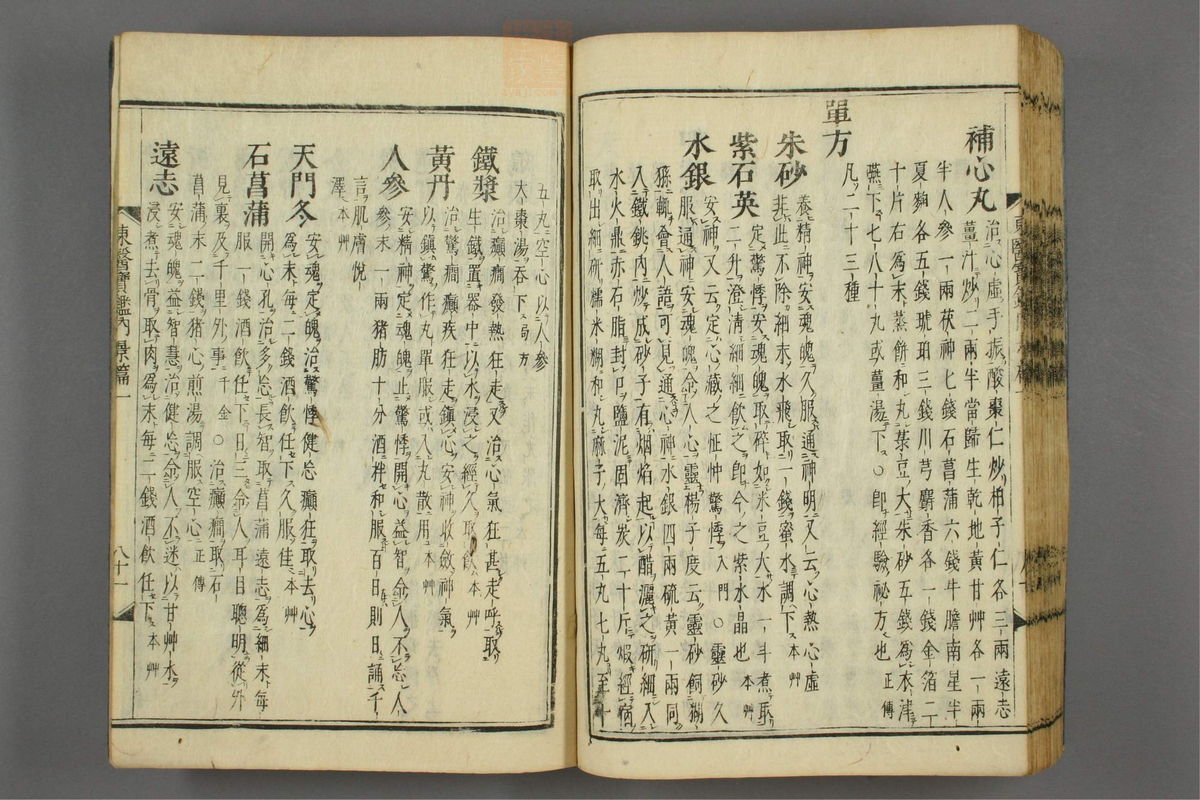 補心丸 治心虛手振酸棗仁炒柏子仁各三兩遠志
薑汁炒二兩半當歸生乾地黃甘艸各一兩
半人參一兩茯神七錢石菖蒲六錢牛膽南星半
夏麴各五錢琥珀三錢川芎麝香各一錢金箔二
十片右爲末蒸餠和丸菉豆大朱砂五錢爲衣津
嚥下七八十丸或薑湯下○卽經驗祕方也 正傳
單方 凡二十三種
朱砂 養精神安魂魄久服通神明又云心熱心虛
非此不除細末水飛取一錢蜜水調下 本艸
紫石英 定驚悸安魂魄取碎如米豆大水一斗煮取
二升澄淸細細飮之卽今之紫水晶也 本艸
水銀 安神又云定心藏之怔忡驚悸 入門 ○靈砂久
服通神安魂魄令人心靈楊子度云靈砂飼猢
猻輒會人語可見通心神水銀四兩硫黃一兩同
入鐵銚內炒成砂子有烟焰起以醋灑之硏細入
水火鼎赤石脂封口鹽泥固濟炭二十斤煆經宿
取出細硏糯米糊和丸麻子大每五丸七丸至十
五丸空心以人參
大棗湯呑下 局方
鐵漿 治癲癎發熱狂走又治心氣狂甚走呼取
生鐵置器中以水浸之經久取飮 本艸
黃丹 治驚癎癲疾狂走鎭心安神收斂神氣
以鎭驚作丸單服或入丸散用 本艸
人參 安精神定魂魄止驚悸開心益智令人不忘人
參末一兩猪肪十分酒拌和服百日則日誦千
言肌膚悅
澤 本艸
天門冬 安魂定魄治驚悸健忘癲狂取去心
爲末每二錢酒飮任下久服佳 本艸
石菖蒲 開心孔治多忘長智取菖蒲遠志爲細末每
服一錢酒飮任下日三令人耳目聰明從外
見裏及千里外事 千金 ○治癲癎取石
菖蒲末二錢猪心煎湯調服空心 正傳
遠志 安魂魄益智慧治健忘令人不迷以甘艸水
浸煮去骨取肉爲末每二錢酒飮任下 本艸
東醫寶鑑內景篇一
八十一